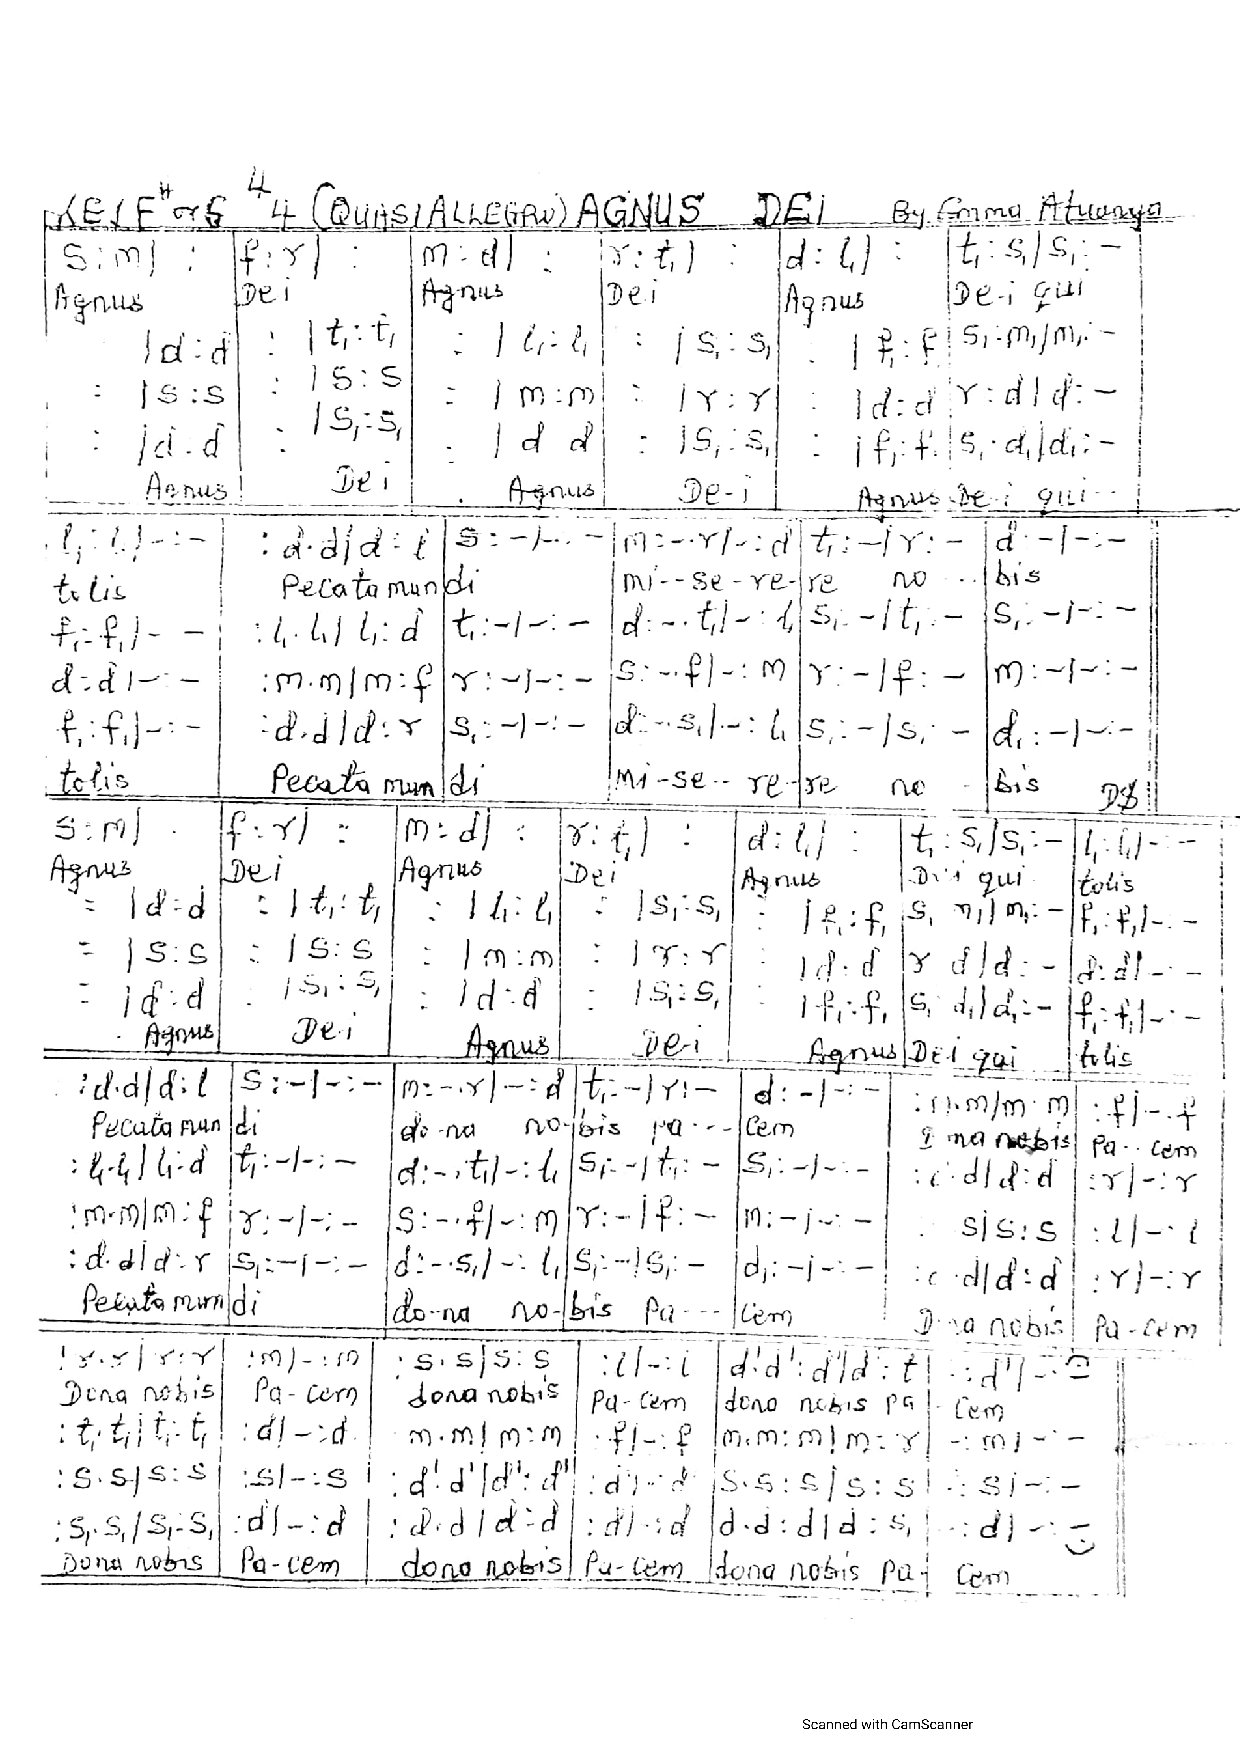 KEY F# or G 4/4 (QUASI ALLEGRO) AGNUS DEI By Emma Atuanya
s:m| : | f:r| : | m:d| : | r:t,| : | d:l,| : | t,:s,|s,:-
Agnus Dei Agnus Dei Agnus De-i qui
|d:d | : |t,:t, | : |l,:l, | : |s,:s, | : |f,:f, | s,:m,|m,:-
: |s:s | : |s:s | : |m:m | : |r:r | : |d:d | r:d|d:-
: |d:d | : |s,:s, | : |d d | : |s,:s, | : |f,:f, | s,:d,|d,:-
Agnus De i Agnus De-i Agnus De-i qui
l,:l,|-:- | :d.d|d:l | s:-|-:- | m:-.r|-:d | t,:-|r:- | d:-|-:-
tolis Pecata mundi mi--se-re-re no bis
f,:f,|- - | :l,.l,|l,:d | t,:-|-:- | d:-.t,|-:l, | s,:-|t,:- | s,:-|-:-
d:d|-:- | :m.m|m:f | r:-|-:- | s:-.f|-:m | r:-|f:- | m:-|-:-
f,:f,|-:- | :d.d|d:r | s,:-|-:- | d:-.s,|-:l, | s,:-|s,:- | d,:-|-:-
tolis Pecata mundi mi-se--re-re no bis D$
s:m| : | f:r| : | m:d| : | r:t,| : | d:l,| : | t,:s,|s,:- | l,:l,|-:-
Agnus Dei Agnus Dei Agnus Dei qui tolis
: |d:d | : |t,:t, | : |l,:l, | : |s,:s, | : |f,:f, | s, m,|m,:- | f,:f,|-:-
: |s:s | : |s:s | : |m:m | : |r:r | |d:d | r d|d:- | d:d|-:-
: |d:d | |s,:s, | : |d:d | |s,:s, | : |f,:f, | s, d,|d,:- | f,:f,|-:-
Agnus De-i Agnus De-i Agnus Dei qui tolis
:d.d|d:l | s:-|-:- | m:-.r|-:d | t,:-|r:- | d:-|-:- | m.m|m:m | :f|-.f
Pecata mundi do-na no-bis pa--- cem na nobis pa-cem
:l,.l,|l,:d | t,:-|-:- | d:-.t,|-:l, | s,:-|t,:- | s,:-|-:- | d|d:d | :r|-:r
:m.m|m:f | r:-|-:- | s:-.f|-:m | r:-|f:- | m:-|-:- | s|s:s | :l|-:l
:d.d|d:r | s,:-|-:- | d:-.s,|-:l, | s,:-|s,:- | d,:-|-:- | d|d:d | :r|-:r
Pecata mundi do-na no-bis Pa--- cem na nobis Pa-cem
:r.r|r:r | :m|-:m | :s.s|s:s | :l|-:l | d'd':d'|d':t | -:d'|-:-
Dona nobis Pa-cem dona nobis Pa-cem dona nobis pa- cem
:t,t,|t,:t, | :d|-:d | m.m|m:m | f|-:f | m.m:m|m:r | -:m|-:-
:s.s|s:s | :s|-:s | :d'd'|d':d' | :d'|-:d' | s.s:s|s:s | -:s|-:-
:s,.s,|s,:s, | :d|-:d | :d.d|d:d | :d|-:d | d.d:d|d:s, | -:d|-:-
Dona nobis Pa-cem dona nobis Pa-cem dona nobis pa- cem
Scanned with CamScanner